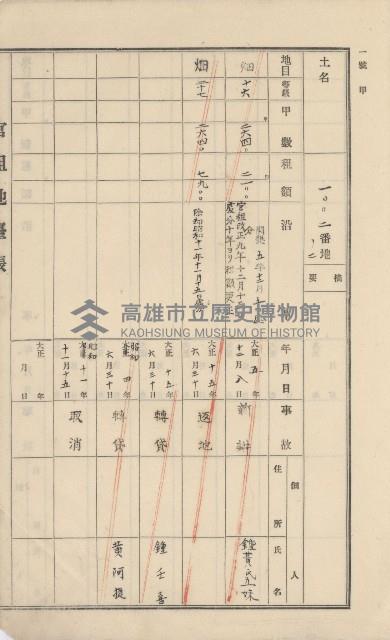 一號甲
土名
一〇〇二番地ノ二
摘要
地目
等級
甲數
租額
沿
年月日
事故
個人
住所
氏名
畑
十六
二六四〇
二一〇〇
開墾 五年十二月
官租改正九年十二月十
處分十年ヨリ租額変更
大正 五年
十二月八日
新規
鍾黄氏五妹
畑
二十七
二六四〇
七九〇〇
除却昭和十一年十一月十五日
大正 十五年
六月三十日
返地
大正 十五年
六月三十日
轉貸
鍾壬喜
昭和 大正 四年
六月三十日
轉貸
黄阿提
昭和 大正 十一年
十一月十五日
取消
大正 年
月 日
官租地臺帳
高雄市立歷史博物館
KAOHSIUNG MUSEUM OF HISTORY